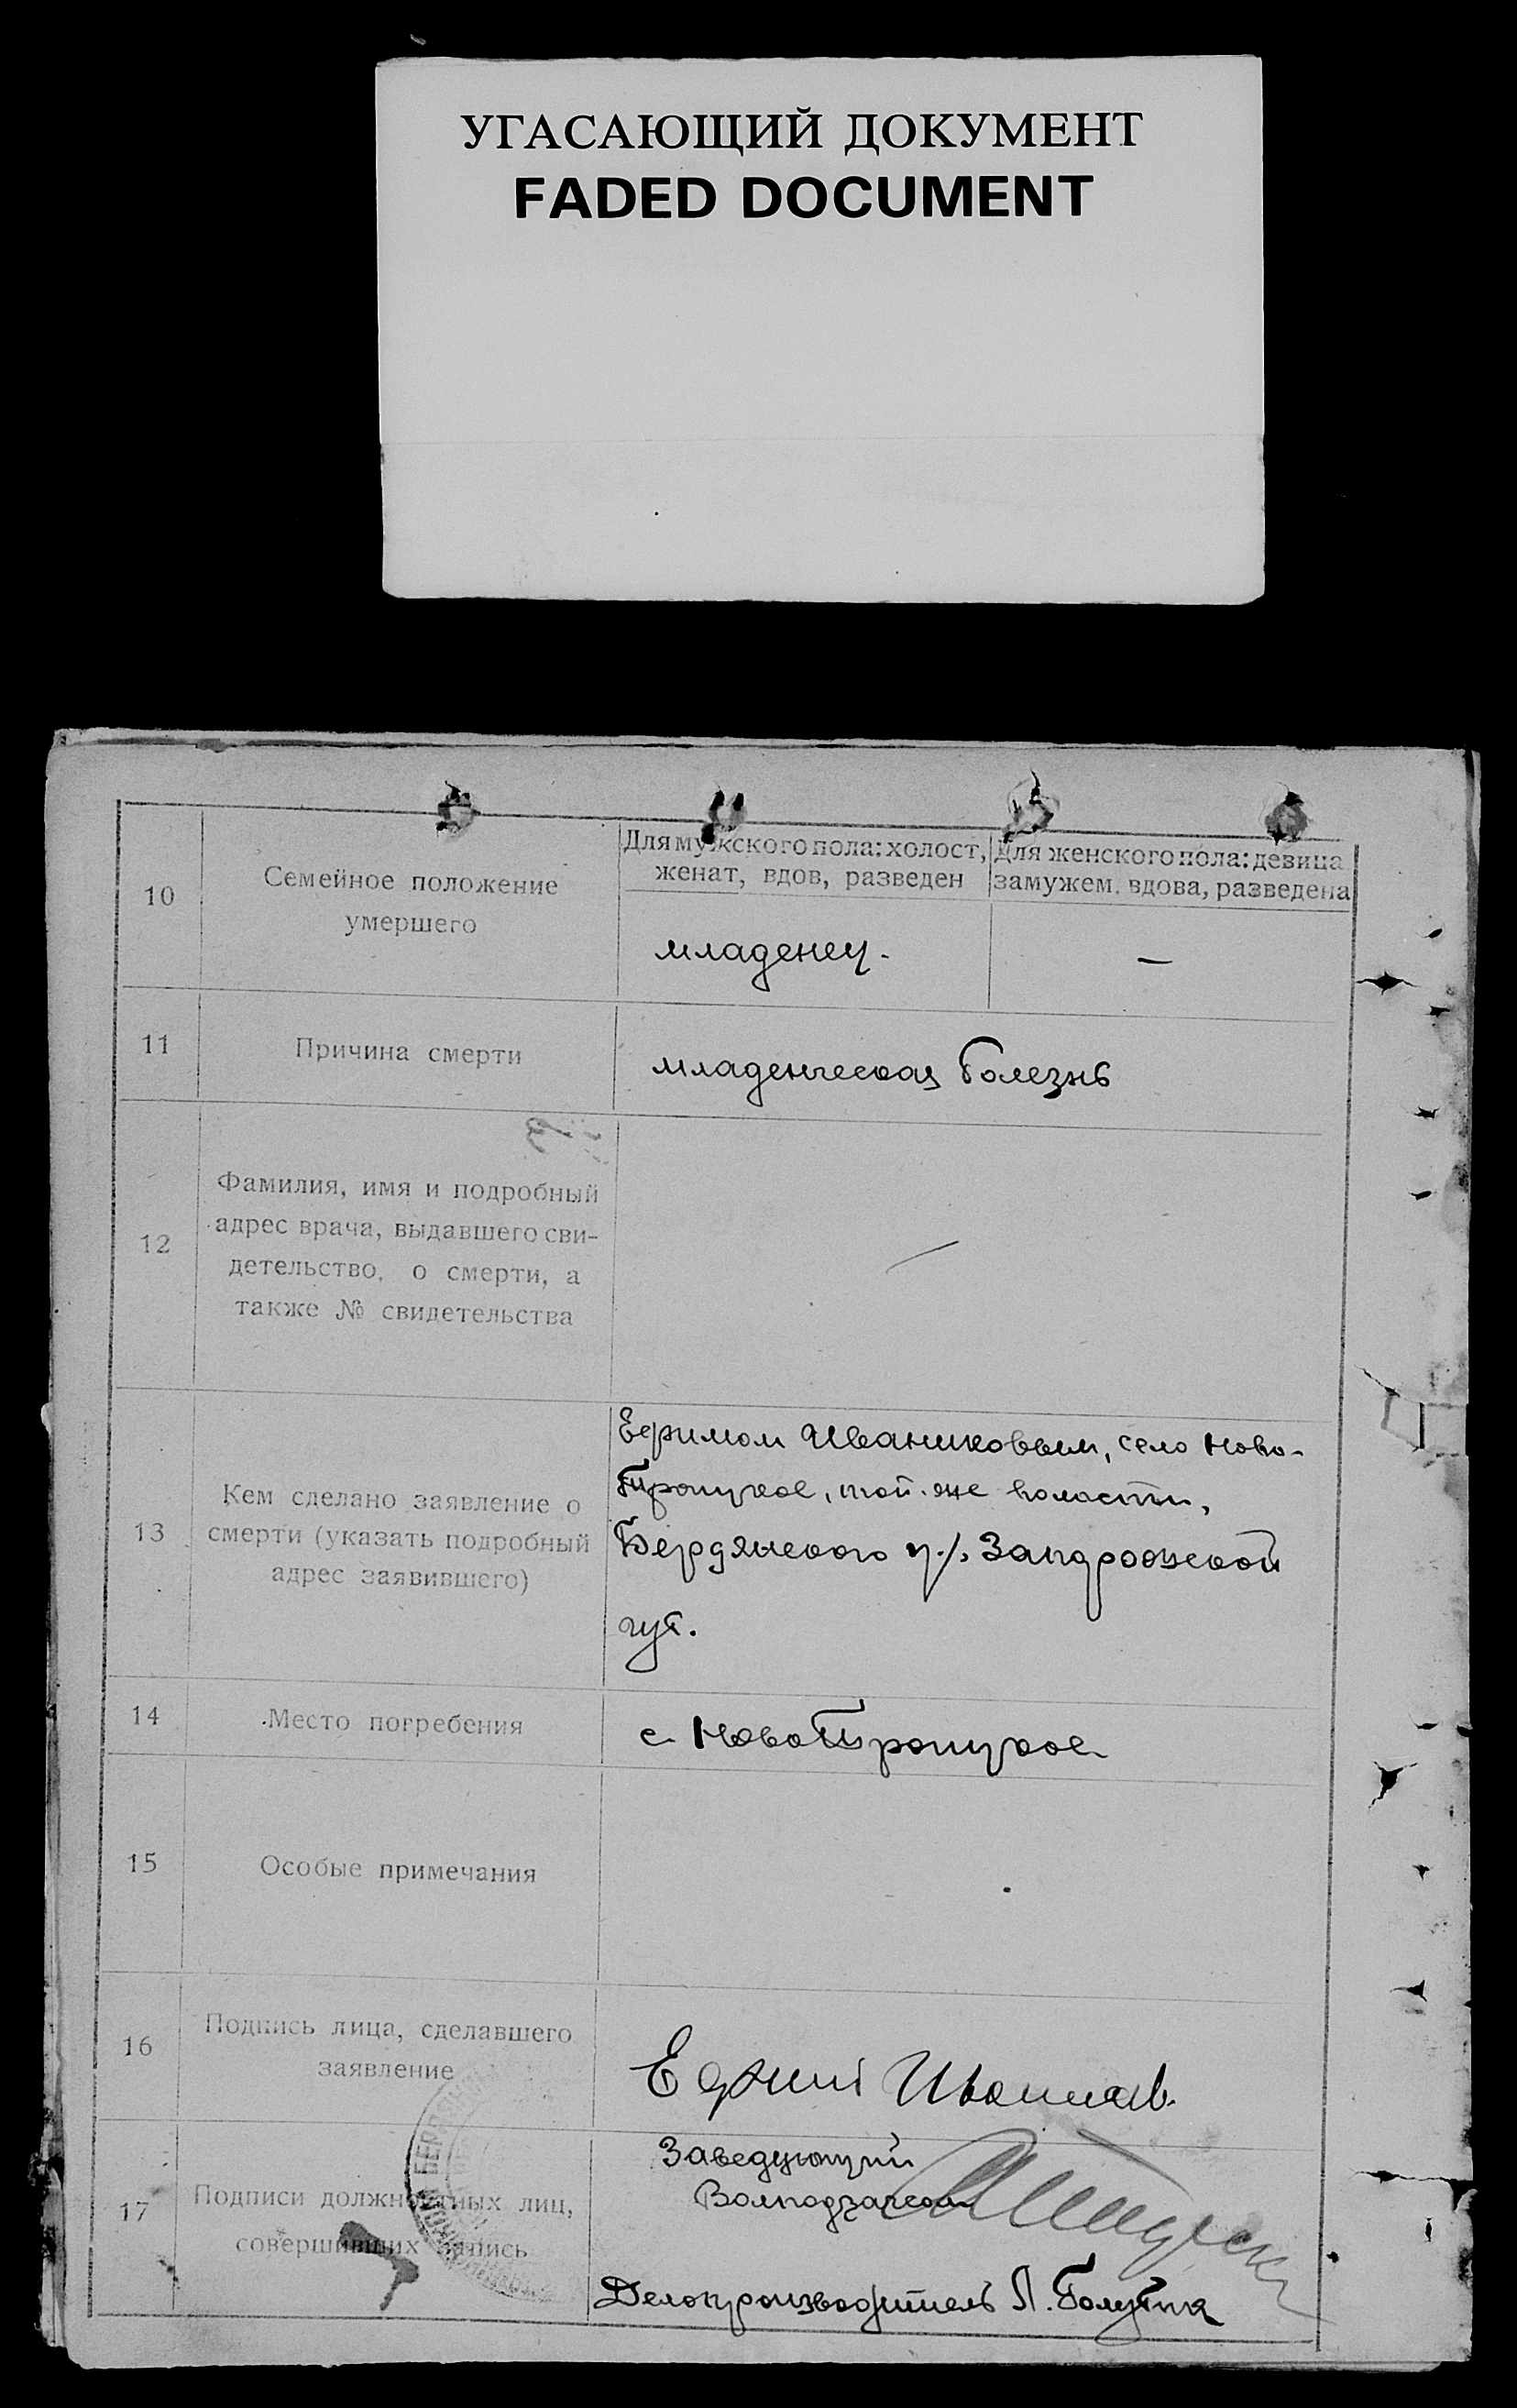 УГАСАЮЩИЙ ДОКУМЕНТ
FADED DOCUMENT
10
Семейное положение
умершего
Для мужского пола: холост,
женат, вдов, разведен
Для женского пола: девица
замужем, вдова, разведена
младенец.
—
11
Причина смерти
младенческая болезнь
12
Фамилия, имя и подробный
адрес врача, выдавшего сви-
детельство, о смерти, а
также № свидетельства
13
Кем сделано заявление о
смерти (указать подробный
адрес заявившего)
Ефимом Иваниковым, село Ново-
Троицкое, той-же волости,
Бердянского у./. Запорожской
губ.
14
Место погребения
с. НовоТроицкое
15
Особые примечания
16
Подпись лица, сделавшего
заявление
Ефим
17
Подписи должностных лиц,
совершивших запись
Заведующий
Волподзагсом
Делопроизводитель